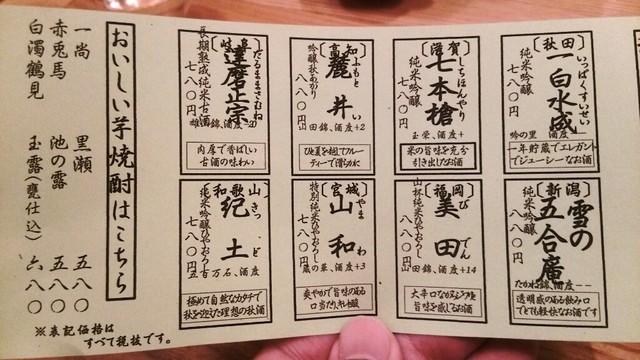 〔秋田〕
いっぱくすいせい
一白水成
純米吟醸
七八〇円
吟の里 酒度
一年貯蔵でエレガント
でジューシーなお酒
〔滋賀〕
しちほんやり
七本槍
純米吟醸
八八〇円
玉栄、酒度+
米の旨味を充分
引き出したお酒
〔高知〕
ふもと
麗
井
吟醸秋あがり
八八〇円
山田錦、酒度+2
ひと夏を越てフルー
ティーで滑らかに
〔岐阜〕
だるままさむね
達磨正宗
長期熟成純米古酒
七八〇円
雄錦、酒度-20
内厚で香ばしい
古酒の味わい
〔新潟〕
雪の
五合庵
純米吟醸
八八〇円
たかね錦、酒度--
透明感のある飲み口
でとても軽快なお酒です
〔福岡〕
びでん
美田
山廃純米ひやおろし
八八〇円
山田錦、酒度+14
大辛口ながら
旨味を感じるお酒
〔宮城〕
やまわ
山和
特別純米ひやおろし
八八〇円
蔵の華、酒度+3
爽やかで旨味のある
口当たり
〔和歌山〕
きっど
紀土
純米吟醸ひやおろし
七八〇円
五百万石、酒度
極めて自然なカタチで
秋を迎えた理想の秋酒
おいしい芋焼酎はこちら
一尚 黒瀬 五八〇
赤兎馬 池の露 五八〇
白濁鶴見 玉露(甕仕込) 六八〇
※表記価格は
すべて税抜です。